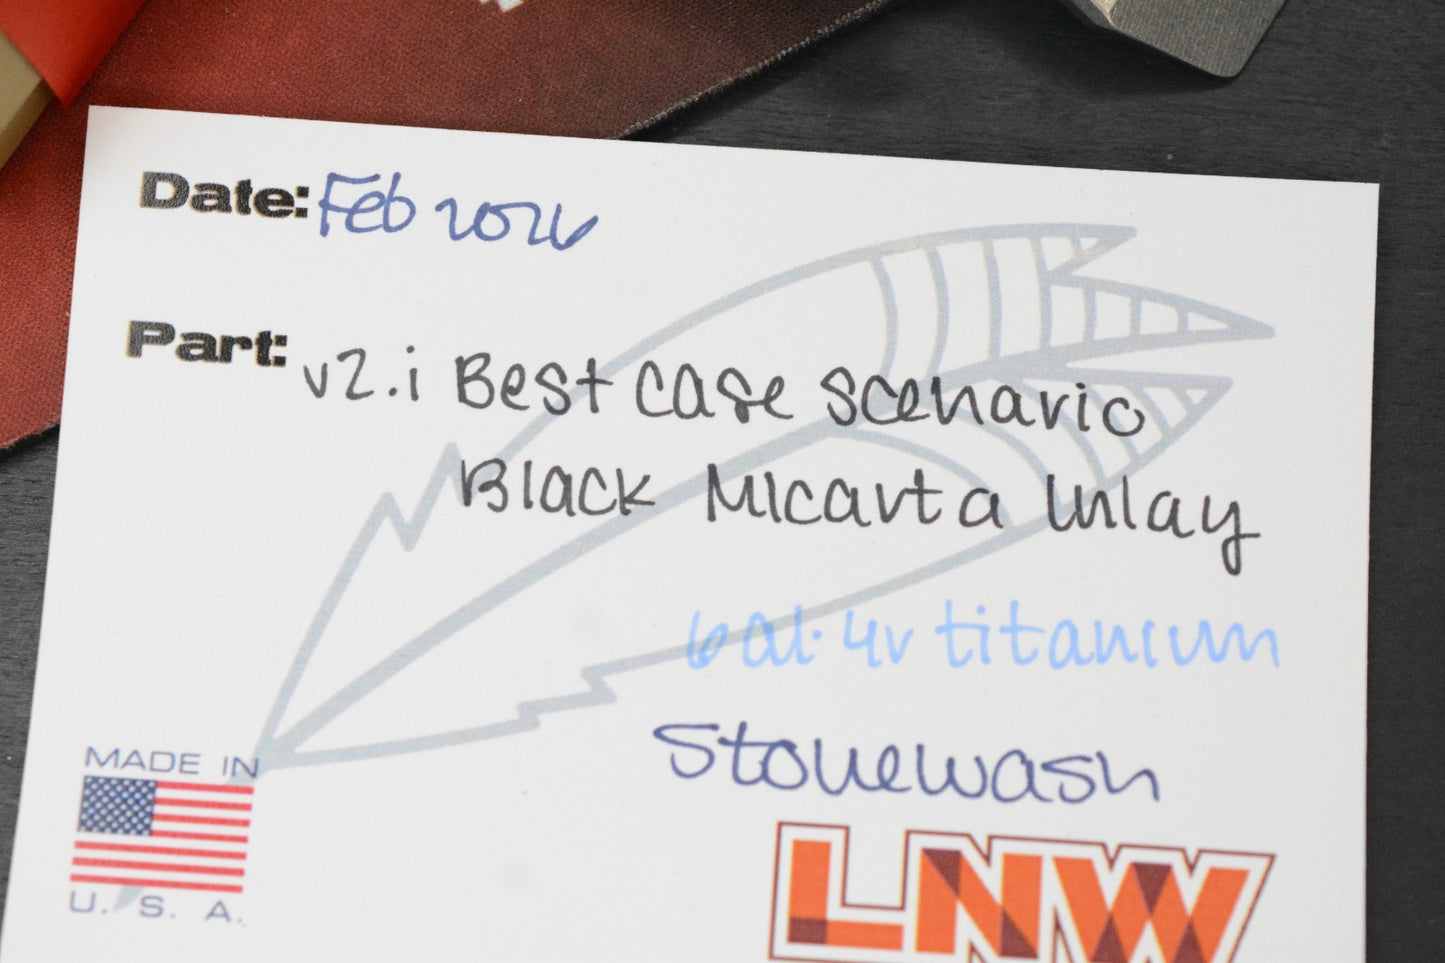 Date: Feb 2026
Part: v2.i Best case scenario
Black Micarta Inlay
6al·4v titanium
Stonewash
MADE IN
U. S. A.
LNW